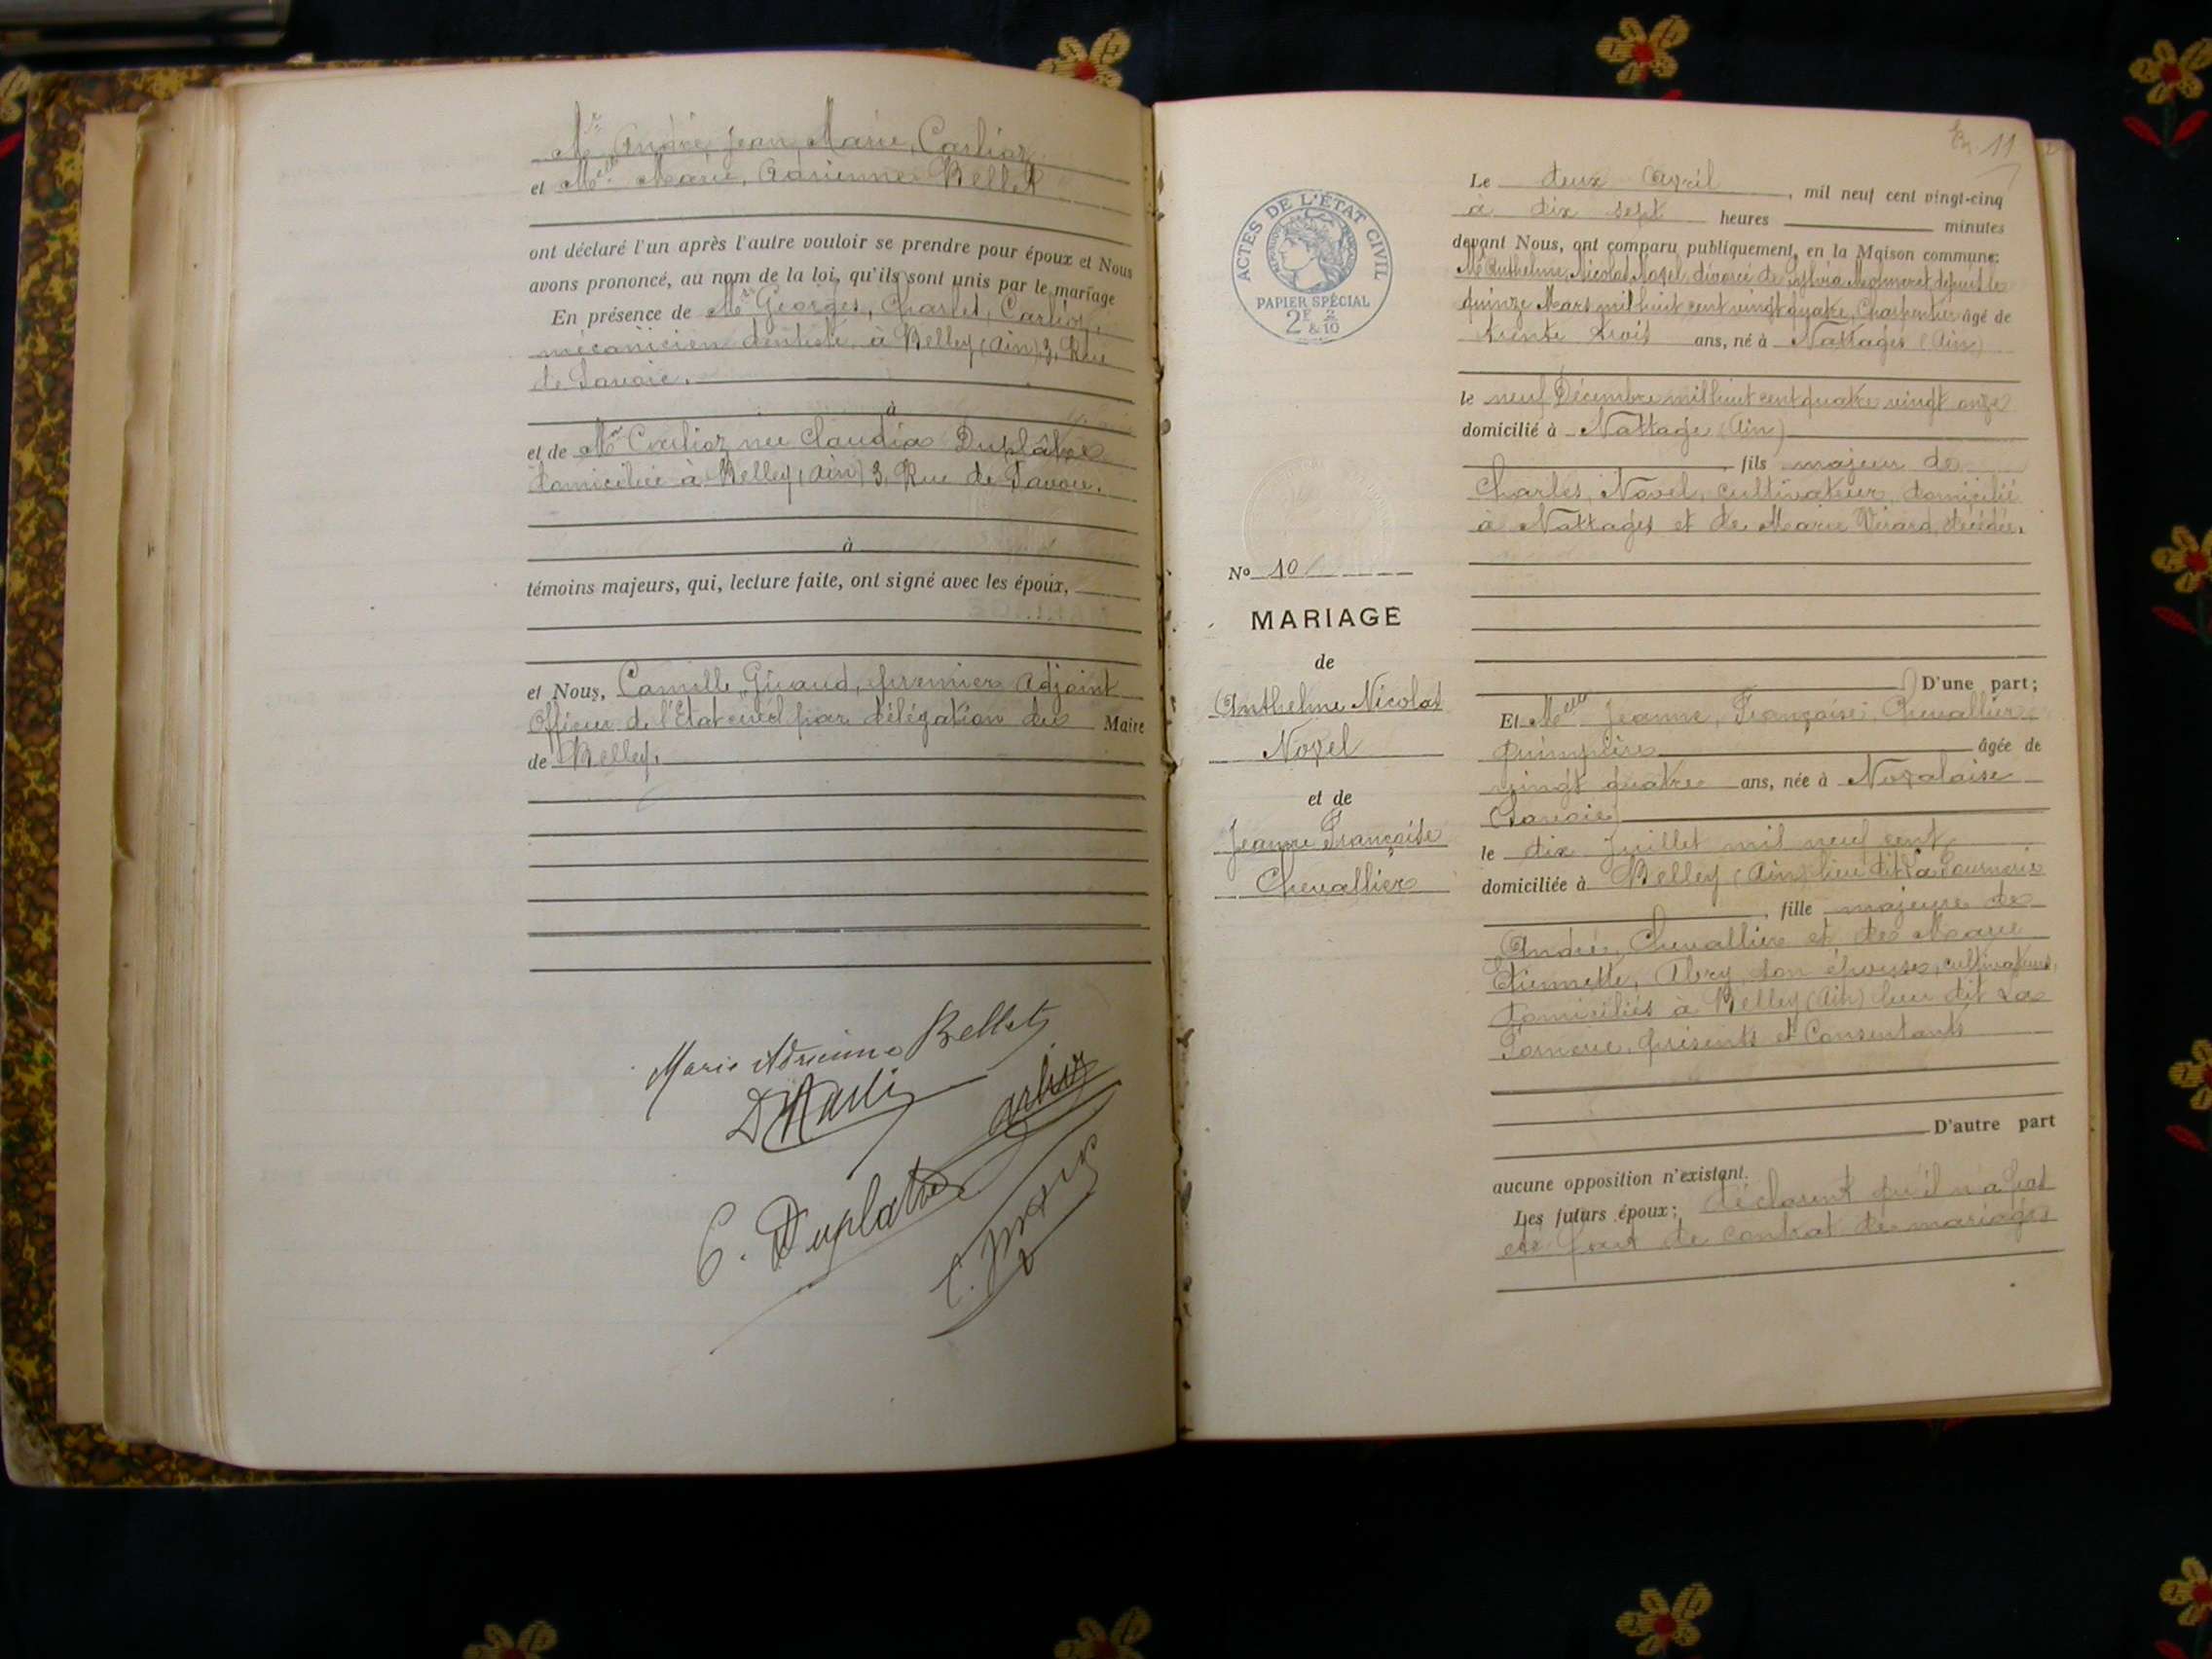 Mr André, Jean Marie, Carlioz
et Melle Marie, Adrienne Bellet
ont déclaré l'un après l'autre vouloir se prendre pour époux et Nous
avons prononcé, au nom de la loi, qu'ils sont unis par le mariage
En présence de Mr Georges, Charles, Carlioz,
mécanicien dentiste, à Belley (Ain) 3, Rue
de Savoie.
à
et de Me Carlioz née Claudia Duplâtre
domiciliée à Belley (Ain) 3, Rue de Savoie.
à
témoins majeurs, qui, lecture faite, ont signé avec les époux,
et Nous, Camille, Giraud, premier Adjoint
Officier de l'État civil par délégation du Maire
de Belley.
Marie Adrienne Bellet
C. Duplatre
11
ACTES DE L'ÉTAT CIVIL
PAPIER SPÉCIAL
2F 2
& 10
Le deux Avril, mil neuf cent vingt-cinq
à dix sept heures minutes
devant Nous, ont comparu publiquement, en la Maison commune:
Mr Anthelme, Nicolas Novel, divorcé de Sylvia depuis le
quinze Mars mil huit cent vingt quatre, Charpentier âgé de
trente trois ans, né à Nattages (Ain)
le neuf Décembre mil huit cent quatre vingt onze
domicilié à Nattage (Ain)
, fils majeur de
Charles, Novel, cultivateur, domicilié
à Nattages et de Marie Vérard, décédée.
No 10
MARIAGE
de
Anthelme Nicolas
Novel
et de
Jeanne Françoise
Chevallier
D'une part;
Et Melle Jeanne, Françoise, Chevallier
âgée de
vingt quatre ans, née à Novalaise
(Savoie)
le dix Juillet mil neuf cent
domiciliée à Belley (Ain) lieu dit La
, fille majeure de
André, Chevallier et de Marie
Etiennette, Abry, son épouse, cultivateurs,
domiciliés à Belley (Ain) lieu dit La
présents et Consentants
D'autre part
aucune opposition n'existant.
Les futurs époux; déclarent qu'il n'a pas
été fait de contrat de mariage